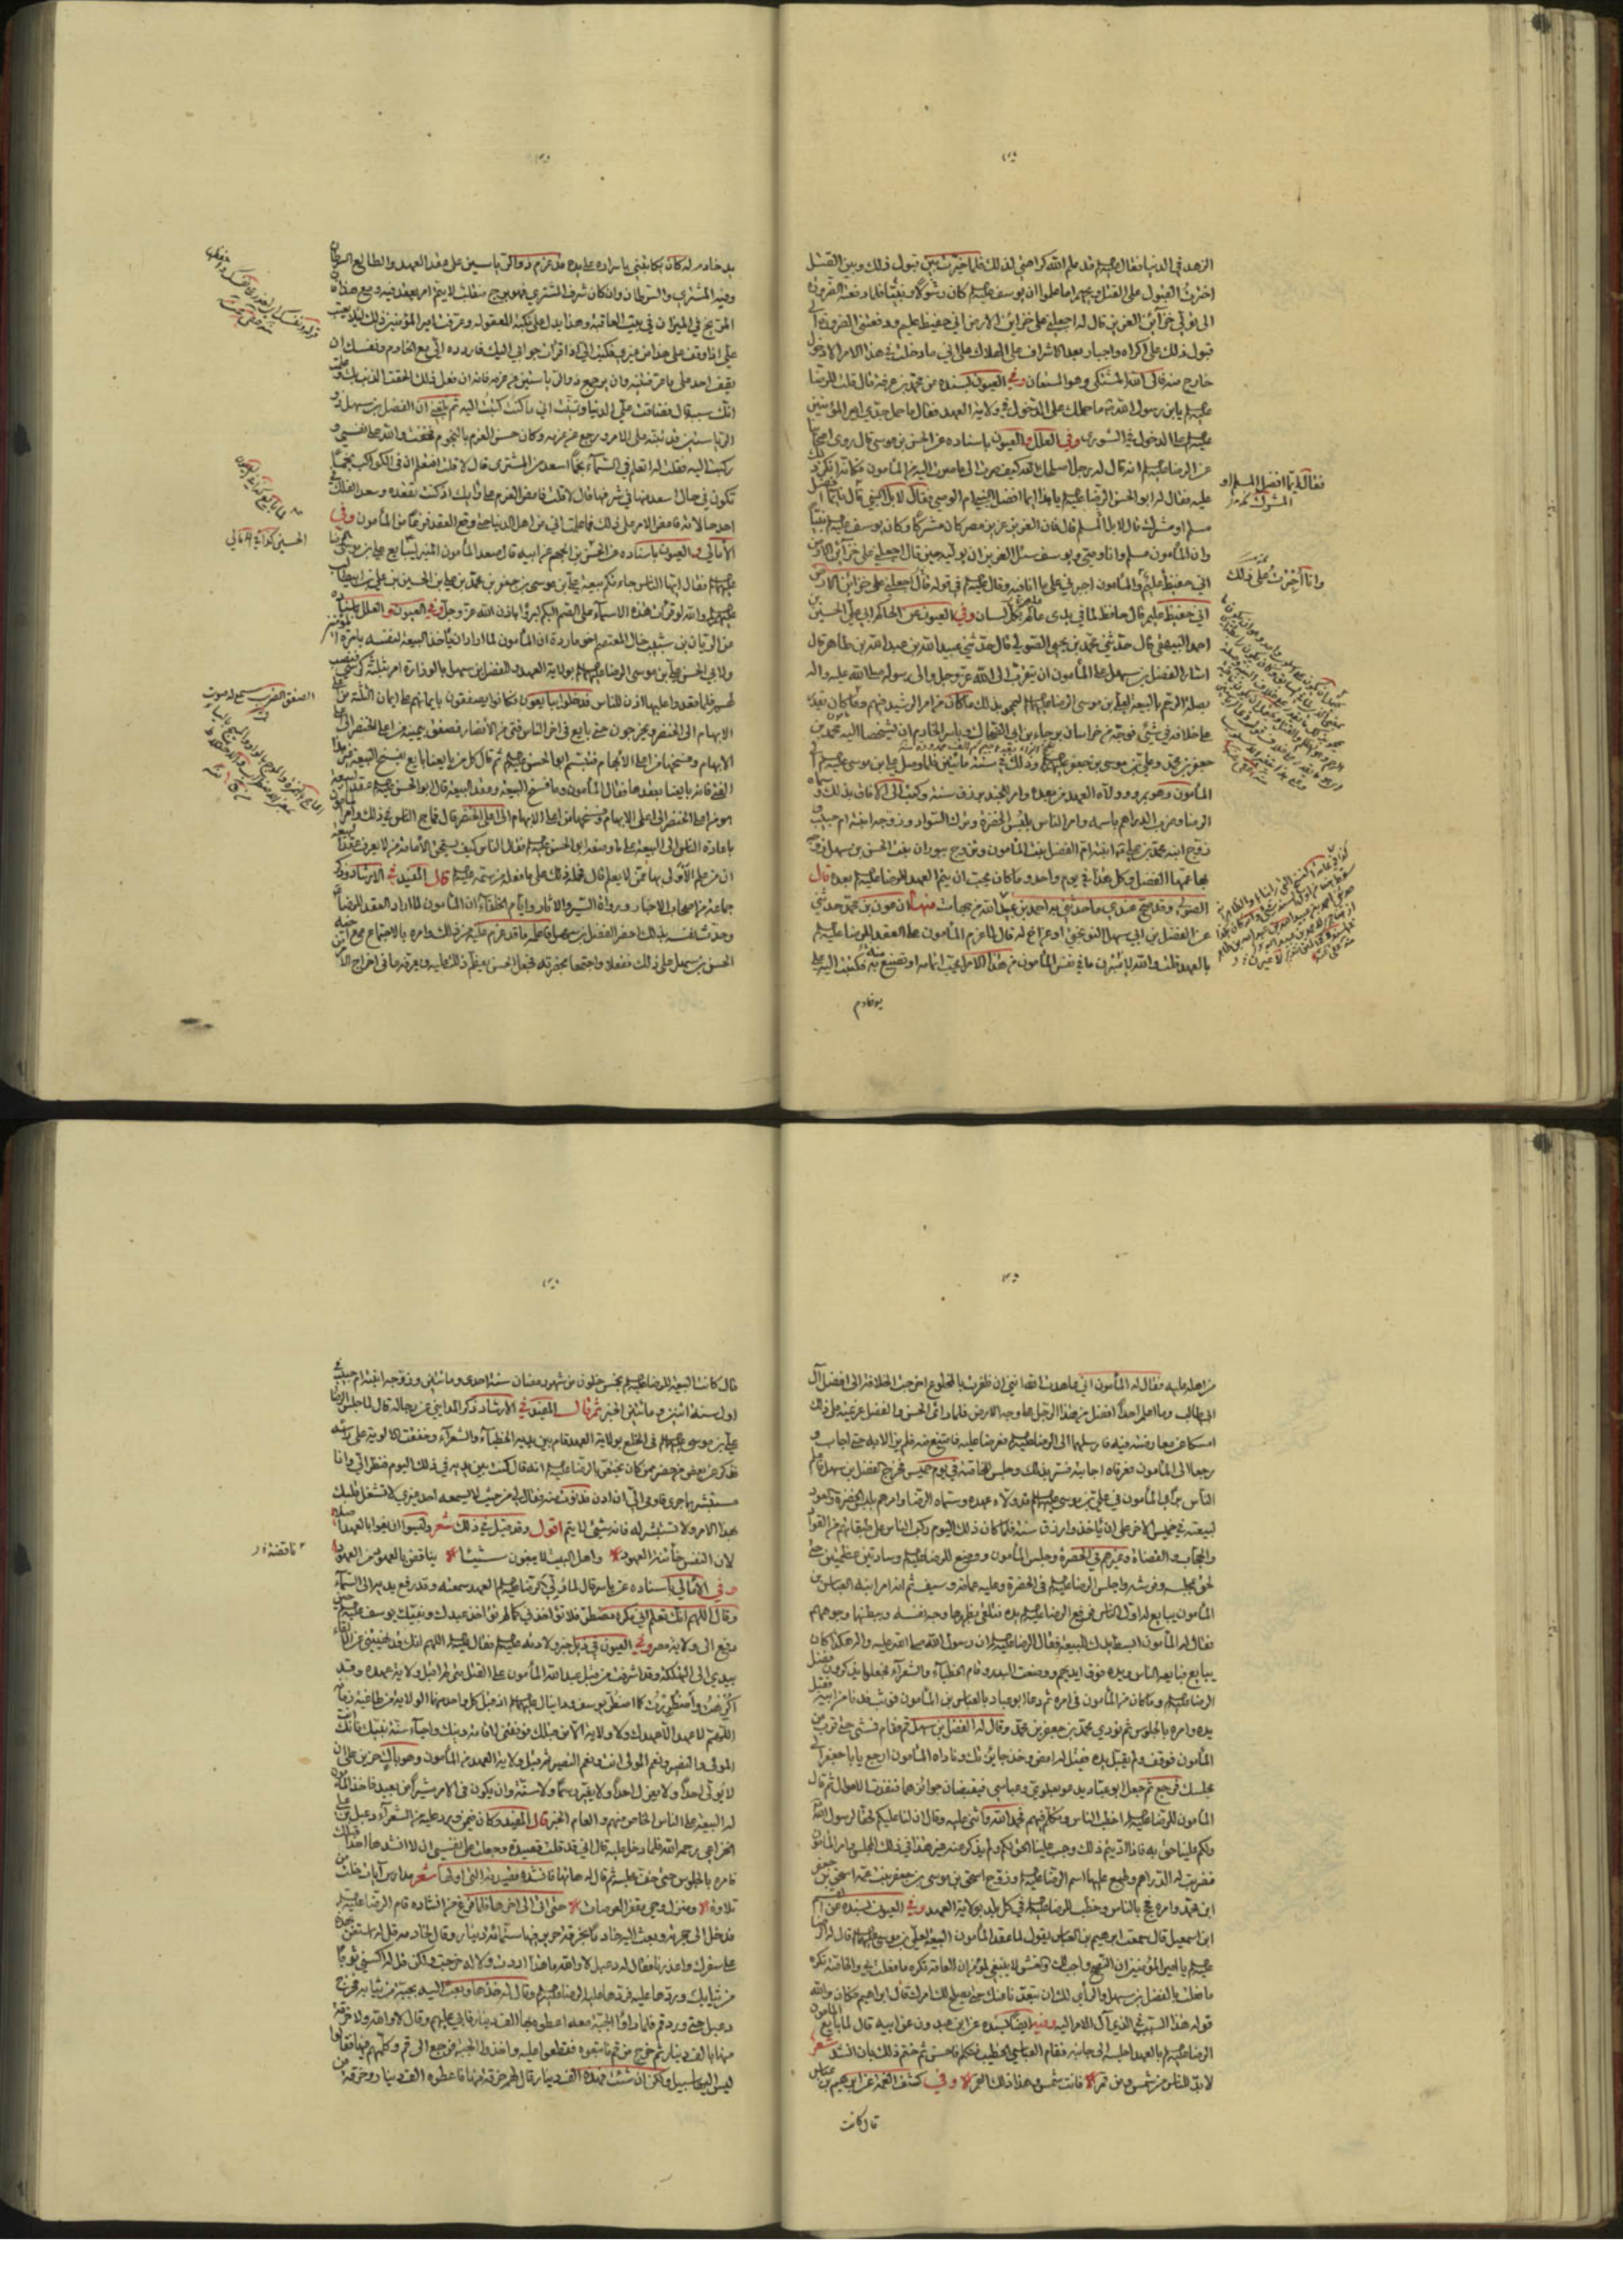 الزهد في الدنيا فقال عليه السلام قد علم الله كراهتي لذلك فلما خيرت بين قبول ذلك وبين القتل
اخترت القبول على القتل ويحهم اما علموا ان يوسف عليه السلام كان رسولا ونبيا فلما دفعته الضرورة
الى تولي خزائن العزيز قال له اجعلني على خزائن الارض اني حفيظ عليم ودفعتني الضرورة الى
قبول ذلك على اكراه واجبار بعد الاشراف على الهلاك على اني ما دخلت في هذا الامر الا دخول
خارج منه فالى الله المشتكى وهو المستعان وفي العيون بسنده عن محمد بن عرفة قال قلت للرضا
عليه السلام يا بن رسول الله ما حملك على الدخول في ولاية العهد فقال ما حمل جدي امير المؤمنين
عليه السلام على الدخول في الشورى وفي العلل والعيون باسناده عن الحسن بن موسى قال روى اصحابنا
عن الرضا عليه السلام انه قال له رجل اصلحك الله كيف صرت الى ما صرت اليه من المأمون فكانه انكر ذلك
عليه فقال له ابو الحسن الرضا عليه السلام يا هذا ايما افضل النبي ام الوصي فقال لا بل النبي قال فايما افضل
مسلم او مشرك قال لا بل المسلم قال فان العزيز عزيز مصر كان مشركا وكان يوسف عليه السلام نبيا
وان المأمون مسلم وانا وصي ويوسف سئل العزيز ان يوليه حين قال اجعلني على خزائن الارض
اني حفيظ عليم والمأمون اجبرني على ما انا فيه وقال عليه السلام في قوله قال اجعلني على خزائن الارض
اني حفيظ عليم قال حافظ لما في يدي عالم بكل لسان وفي العيون عن الحاكم ابي علي الحسين بن
احمد البيهقي قال حدثني محمد بن يحيى الصولي قال حدثني عبيد الله بن عبد الله بن طاهر قال
اشار الفضل بن سهل على المأمون ان يتقرب الى الله عز وجل والى رسوله صلى الله عليه واله
بصلة الرحم بالبيعة لعلي بن موسى الرضا عليهما السلام ليمحو بذلك ما كان من امر الرشيد فيهم وما كان يقدر
على خلافه في شيء فوجه من خراسان برجاء بن ابي الضحاك وياسر الخادم ان يشخصا اليه محمد بن
جعفر بن محمد وعلي بن موسى بن جعفر عليهم السلام وذلك في سنة مأتين فلما وصل علي بن موسى عليه السلام الى
المأمون وهو بمرو ولاه العهد من بعده وامر للجند برزق سنة وكتب الى الافاق بذلك وسماه
الرضا وضرب الدراهم باسمه وامر الناس بلبس الخضرة وترك السواد وزوجه ابنته ام حبيب و
زوج ابنه محمد بن علي عليهما السلام ابنته ام الفضل بنت المأمون وتزوج ببوران بنت الحسن بن سهل زوجه
بها عمها الفضل وكل هذا في يوم واحد وما كان يحب ان يتم العهد للرضا عليه السلام بعده قال
الصولي وقد صح عندي ما حدثني به احمد بن عبيد الله من جهات منها ان عون بن محمد حدثني
عن الفضل بن ابي سهل النوبختي او عن اخ له قال لما عزم المأمون على العقد للرضا عليه السلام
بالعهد قلت والله لاعتبرن ما في نفس المأمون من هذا الامر ايحب اتمامه او تصنع به فكتبت اليه على
يد خادم
فقال فايما افضل المسلم او
المشرك
وانا اجبرت على ذلك
يد خادم له كان يكاتبني باسراره على يده قد عزم ذو الرياستين على عقد العهد والطالع السرطان
وفيه المشتري والسرطان وان كان شرف المشتري فهو برج منقلب لا يتم امر يعقد فيه ومع هذا فان
المريخ في الميزان في بيت العاقبة وهذا يدل على نكبة المعقود له وعرفت امير المؤمنين ذلك لئلا يعتب
علي اذا وقف على هذا من غيري فكتب الي اذا قرأت جوابي اليك فاردده الي مع الخادم ونفسك ان
يقف احد على ما عرفتنيه وان يرجع ذو الرياستين عن عزمه فانه ان فعل ذلك الحقت الذنب بك وعلمت
انك سببه قال فضاقت علي الدنيا وتمنيت اني ما كنت كتبت اليه ثم بلغني ان الفضل بن سهل ذو
الرياستين قد تنبه على الامر ورجع عن عزمه وكان حسن العلم بالنجوم فخفت والله على نفسي و
ركبت اليه فقلت له اتعلم في السماء نجما اسعد من المشتري قال لا قلت افتعلم ان في الكواكب نجما
تكون في حال اسعد منها في شرفها قال لا قلت فامض العزم على رأيك اذ كنت تعقده وسعد الفلك في
اسعد حالاته فامضى الامر على ذلك فما علمت اني من اهل الدنيا حتى وقع العقد فزعا من المأمون وفي
الامالي والعيون باسناده عن الحسن بن الجهم عن ابيه قال صعد المأمون المنبر ليبايع علي بن موسى الرضا
عليهما السلام فقال ايها الناس جاءتكم بيعة علي بن موسى بن جعفر بن محمد بن علي بن الحسين بن علي بن ابيطالب
عليهم السلام والله لو قرأت هذه الاسماء على الصم البكم لبرؤا باذن الله عز وجل وفي العيون والعلل باسناده
عن الريان بن شبيب خال المعتصم اخو ماردة ان المأمون لما اراد ان يأخذ البيعة لنفسه بامرة المؤمنين
ولابي الحسن علي بن موسى الرضا عليهما السلام بولاية العهد وللفضل بن سهل بالوزارة امر بثلثة كراسي فنصبت
لهم فلما قعدوا عليها اذن للناس فدخلوا يبايعون فكانوا يصفقون بايمانهم على ايمان الثلثة من اعلى
الابهام الى الخنصر ويخرجون حتى بايع في اخر الناس فتى من الانصار فصفق بيمينه من اعلى الخنصر الى اعلى
الابهام فتبسم ابو الحسن عليه السلام ثم قال كل من بايعنا بايع بفسخ البيعة غير هذا
الفتى فانه بايعنا بعقدها فقال المأمون وما فسخ البيعة وعقد البيعة قال ابو الحسن عليه السلام عقد البيعة
هو من اعلى الخنصر الى اعلى الابهام وفسخها من اعلى الابهام الى اعلى الخنصر قال فماج الناس في ذلك وامر المأمون
باعادة الناس الى البيعة على ما وصفه ابو الحسن عليه السلام فقال الناس كيف يستحق الامامة من لا يعرف عقد البيعة
ان من علم لاولى بها ممن لا يعلم قال فحمله ذلك على ما فعله من سمه عليه السلام قال المفيد في الارشاد وذكر
جماعة من اصحاب الاخبار ورواة السير والاثار وايام الخلفاء ان المأمون لما اراد العقد للرضا
وحدث نفسه بذلك احضر الفضل بن سهل فاعلمه ما قد عزم عليه من ذلك وامره بالاجتماع مع اخيه
الحسن بن سهل على ذلك ففعل واجتمعا بحضرته فجعل الحسن يعظم ذلك عليه ويعرفه ما في اخراج الامر
الحسين كذا في الامالي
من اهله عليه فقال له المأمون اني عاهدت الله انني ان ظفرت بالمخلوع اخرجت الخلافة الى افضل آل
ابيطالب وما اعلم احدا افضل من هذا الرجل على وجه الارض فلما رأى الحسن والفضل عزيمته على ذلك
امسكا عن معارضته فيه فارسلهما الى الرضا عليه السلام فعرضا عليه فامتنع منه فلم يزالا به حتى اجاب و
رجعا الى المأمون فعرفاه اجابته فسر بذلك وجلس للخاصة في يوم خميس فخرج الفضل بن سهل فاعلم
الناس برأي المأمون في علي بن موسى عليهما السلام وانه قد ولاه عهده وسماه الرضا وامرهم بلبس الخضرة والعود
لبيعته في خميس الاخر على ان يأخذوا رزق سنة فلما كان ذلك اليوم ركب الناس على طبقاتهم من القواد
والحجاب والقضاة وغيرهم في الخضرة وجلس المأمون ووضع للرضا عليه السلام وسادتين عظيمتين حتى
لحق بمجلسه وفرشه واجلس الرضا عليه السلام في الخضرة وعليه عمامة وسيف ثم امر ابنه العباس بن
المأمون يبايع له اول الناس فرفع الرضا عليه السلام يده فتلقى بظهرها وجه نفسه وببطنها وجوههم
فقال له المأمون ابسط يدك للبيعة فقال الرضا عليه السلام ان رسول الله صلى الله عليه واله هكذا كان
يبايع فبايعه الناس ويده فوق ايديهم ووضعت البدر وقام الخطباء والشعراء فجعلوا يذكرون فضل
الرضا عليه السلام وما كان من المأمون في امره ثم دعا ابو عباد بالعباس بن المأمون فوثب فدنا من ابيه فقبل
يده وامره بالجلوس ثم نودي محمد بن جعفر بن محمد وقال له الفضل بن سهل قم فقام فمشى حتى قرب من
المأمون فوقف ولم يقبل يده فقيل له امض وخذ جائزتك وناداه المأمون ارجع يا ابا جعفر الى
مجلسك فرجع ثم جعل ابو عباد يدعو بعلوي وعباسي فيقبضان جوائزهما حتى نفدت الاموال ثم قال
المأمون للرضا عليه السلام اخطب الناس وتكلم فيهم فحمد الله واثنى عليه وقال ان لنا عليكم حقا لرسول الله
ولكم علينا حق به فاذا اديتم ذلك وجب علينا الحق لكم ولم يذكر عنه غير هذا في ذلك المجلس وامر المأمون
فضربت له الدراهم وطبع عليها اسم الرضا عليه السلام وزوج اسحق بن موسى بن جعفر بنت عمه اسحق بن جعفر
ابن محمد وامره فحج بالناس وخطب للرضا عليه السلام في كل بلد بولاية العهد وفي العيون بسنده عن القاسم
ابن اسمعيل قال سمعت ابرهيم بن العباس يقول لما عقد المأمون البيعة لعلي بن موسى عليهما السلام قال له الرضا
عليه السلام يا امير المؤمنين ان النصح واجب لك والغش لا ينبغي لمؤمن ان العامة تكره ما فعلت بي والخاصة تكره
ما فعلت بالفضل بن سهل والرأي لك ان تبعدنا عنك حتى يصلح لك امرك قال ابراهيم فكان والله
قوله هذا السبب في الذي آل الامر اليه وفيه ايضا بسنده عن ابن عبدون عن ابيه قال لما بايع المأمون
الرضا عليه السلام بالعهد اجلسه الى جانبه فقام العباسي الخطيب فتكلم فاحسن ثم ختم ذلك بان انشد شعر
لا بد للناس من شمس ومن قمر فانت شمس وهذا ذلك القمر وفي كشف الغمة عن ابرهيم بن عباس
قال كانت
قال كانت البيعة للرضا عليه السلام بخمس خلون من شهر رمضان سنة احدى ومأتين وزوجه ابنته ام حبيب في
اول سنة اثنين ومأتين الخبر ثم قال المفيد في الارشاد ذكر المدايني عن رجاله قال لما جلس الرضا
علي بن موسى عليهما السلام في الخلع بولاية العهد قام بين يديه الخطباء والشعراء وخفقت الالوية على رأسه
فذكر عن بعض من حضر ممن كان يختص بالرضا عليه السلام انه قال كنت بين يديه في ذلك اليوم فنظر الي وانا
مستبشر بما جرى فاومى الي ان ادن فدنوت منه فقال لي من حيث لا يسمعه احد غيري لا تشغل قلبك
بهذا الامر ولا تستبشر له فانه شيء لا يتم اقول وقد قيل في ذلك شعر وهبوا ان يفوا بالعهد اصلا
لان النفس خائنة العهود واهل البيت لا يبغون شيئا يناقض بالعهود من العهود
وفي الامالي باسناده عن ياسر قال لما ولي الرضا عليه السلام العهد سمعته وقد رفع يديه الى السماء
وقال اللهم انك تعلم اني مكره مضطر فلا تؤاخذني كما لم تؤاخذ عبدك ونبيك يوسف عليه السلام حين
دفع الى ولاية مصر وفي العيون في ذيل خبر ولادته عليه السلام فقال عليه السلام اللهم انك قد نهيتني عن الالقاء
بيدي الى التهلكة وقد اشرفت من قبل عبد الله المأمون على القتل متى لم اقبل ولاية عهده وقد
اكرهت واضطررت كما اضطر يوسف ودانيال عليهما السلام اذ قبل كل واحد منهما الولاية من طاغية زمانه
اللهم لا عهد الا عهدك ولا ولاية الا من قبلك فوفقني لاقامة دينك واحياء سنة نبيك فانك انت
المولى والنصير ونعم المولى انت ونعم النصير ثم قبل ولاية العهد من المأمون وهو باك حزين على ان
لا يولي احدا ولا يعزل احدا ولا يغير رسما ولا سنة وان يكون في الامر مشيرا من بعيد فاخذ المأمون
له البيعة على الناس الخاص منهم والعام الخبر قال المفيد وكان فيمن ورد عليه من الشعراء دعبل بن علي
الخزاعي رحمه الله فلما دخل عليه قال اني قد قلت قصيدة وجعلت على نفسي ان لا انشدها احدا قبلك
فامره بالجلوس حتى خف مجلسه ثم قال له هاتها فانشده قصيدته التي اولها شعر مدارس آيات خلت من
تلاوة ومنزل وحي مقفر العرصات حتى اتى الى اخرها فلما فرغ من انشاده قام الرضا عليه السلام
فدخل الى حجرته وبعث اليه خادما بخرقة خز فيها ستمائة دينار وقال لخادمه قل له استعن بهذه
على سفرك واعذرنا فقال له دعبل لا والله ما هذا اردت ولا له خرجت ولكن قل له اكسني ثوبا
من ثيابك وردها عليه فردها عليه الرضا عليه السلام وقال له خذها وبعث اليه بجبة من ثيابه فخرج
دعبل حتى ورد قم فلما رأوا الجبة معه اعطوه بها الف دينار فابى عليهم وقال لا والله ولا خرقة
منها بالف دينار ثم خرج من قم فاتبعوه فقطعوا عليه واخذوا الجبة فرجع الى قم وكلمهم فيها فقالوا
ليس اليها سبيل ولكن ان شئت فهذه الف دينار قال لهم وخرقة منها فاعطوه الف دينار وخرقة من